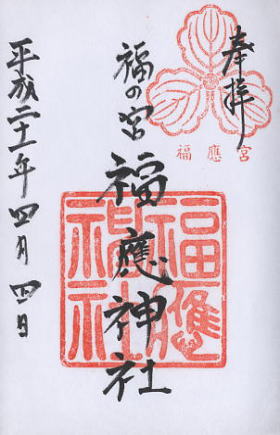 奉拝
福應宮
福の宮 福應神社
福應神社
平成二十一年四月四日